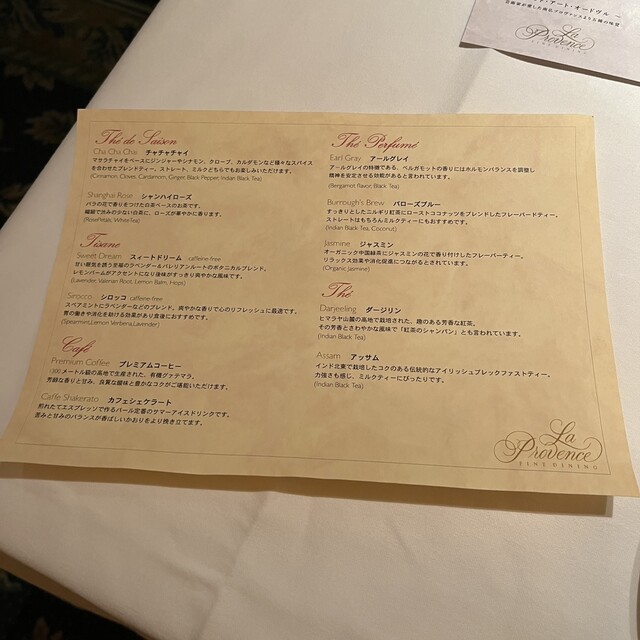 Thé de Saison
Cha Cha Chai チャチャチャイ
マサラチャイをベースにジンジャーやシナモン、クローブ、カルダモンなど様々なスパイス
を合わせたブレンドティー。ストレート、ミルクどちらでもお楽しみいただけます。
(Cinnamon, Cloves, Cardamom, Ginger, Black Pepper, Indian Black Tea)
Shanghai Rose シャンハイローズ
バラの花で香りをつけた白茶ベースのお茶です。
繊細で渋みの少ない白茶に、ローズが華やかに香ります。
(RosePetals, WhiteTea)
Tisane
Sweet Dream スィートドリーム caffeine-free
甘い眠気を誘う至福のラベンダー&バレリアンルートのボタニカルブレンド。
レモンバームがアクセントになり後味がすっきり爽やかな風味です。
(Lavender, Valerian Root, Lemon Balm, Hops)
Sirocco シロッコ caffeine-free
スペアミントにラベンダーなどのブレンド。爽やかな香りで心のリフレッシュに最適です。
胃の働きや消化を助ける効果があり食後におすすめです。
(Spearmint,Lemon Verbena,Lavender)
Café
Premium Coffee プレミアムコーヒー
1300メートル級の高地で生産された、有機グァテマラ。
芳醇な香りと甘み、良質な酸味と豊かなコクがご堪能いただけます。
Caffe Shakerato カフェシェケラート
煎れたてエスプレッソで作るバール定番のサマーアイスドリンクです。
苦みと甘みのバランスが香ばしいかおりをより挽き立てます。
Thé Perfumé
Earl Gray アールグレイ
アールグレイの特徴である、ベルガモットの香りにはホルモンバランスを調整し
精神を安定させる効能があると言われています。
(Bergamot flavor, Black Tea)
Burrough's Brew バローズブルー
すっきりとしたニルギリ紅茶にローストココナッツをブレンドしたフレーバードティー。
ストレートはもちろんミルクティーにもおすすめです。
(Indian Black Tea, Coconut)
Jasmine ジャスミン
オーガニック中国緑茶にジャスミンの花で香り付けしたフレーバーティー。
リラックス効果や消化促進につながるとされています。
(Organic Jasmine)
Thé
Darjeeling ダージリン
ヒマラヤ山麓の高地で栽培された、趣のある芳香な紅茶。
その芳香とさわやかな風味で「紅茶のシャンパン」とも言われています。
(Indian Black Tea)
Assam アッサム
インド北東で栽培したコクのある伝統的なアイリッシュブレックファストティー。
力強さも感じ、ミルクティーにぴったりです。
(Indian Black Tea)
La
Provence
FINE DINING
・アート・オードヴル ～
La
Provence
FINE DINING